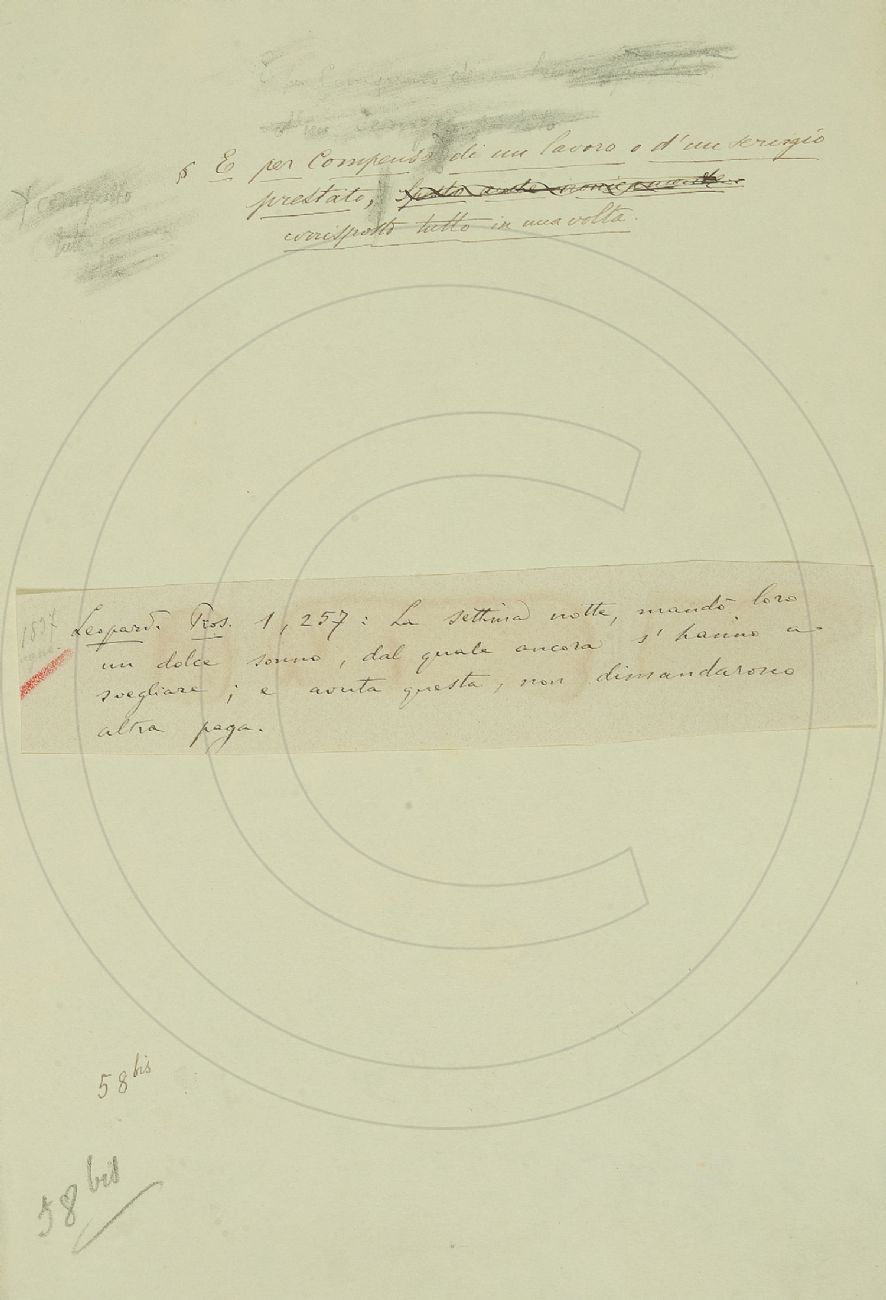 § E per Compenso di un lavoro o d'un servigio
prestato,
corrisposto tutto in una volta.
Leopard. Pros. 1, 257: La settima notte, mandò loro
un dolce sonno, dal quale ancora s'hanno a
svegliare; e avuta questa, non dimandarono
altra paga.
58 bis
58 bis